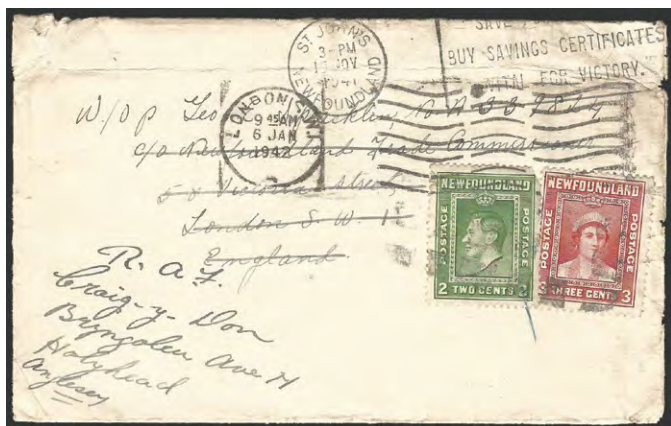 ST. JOHN'S
3 - PM
NOV
1941
NEWFOUNDLAND
SAVE
BUY SAVINGS CERTIFICATES
VITAL FOR VICTORY."
LONDON
9 45 AM
6 JAN
1942
W/O P
c/o Newfoundland Trade Commissioner
58 Victoria Street
London S. W. 1
England
R. A. F.
Craig-y-Don
Ave
Holyhead
Anglesey
NEWFOUNDLAND
POSTAGE
POSTAGE
2 TWO CENTS 2
NEWFOUNDLAND
POSTAGE
POSTAGE
3 THREE CENTS 3